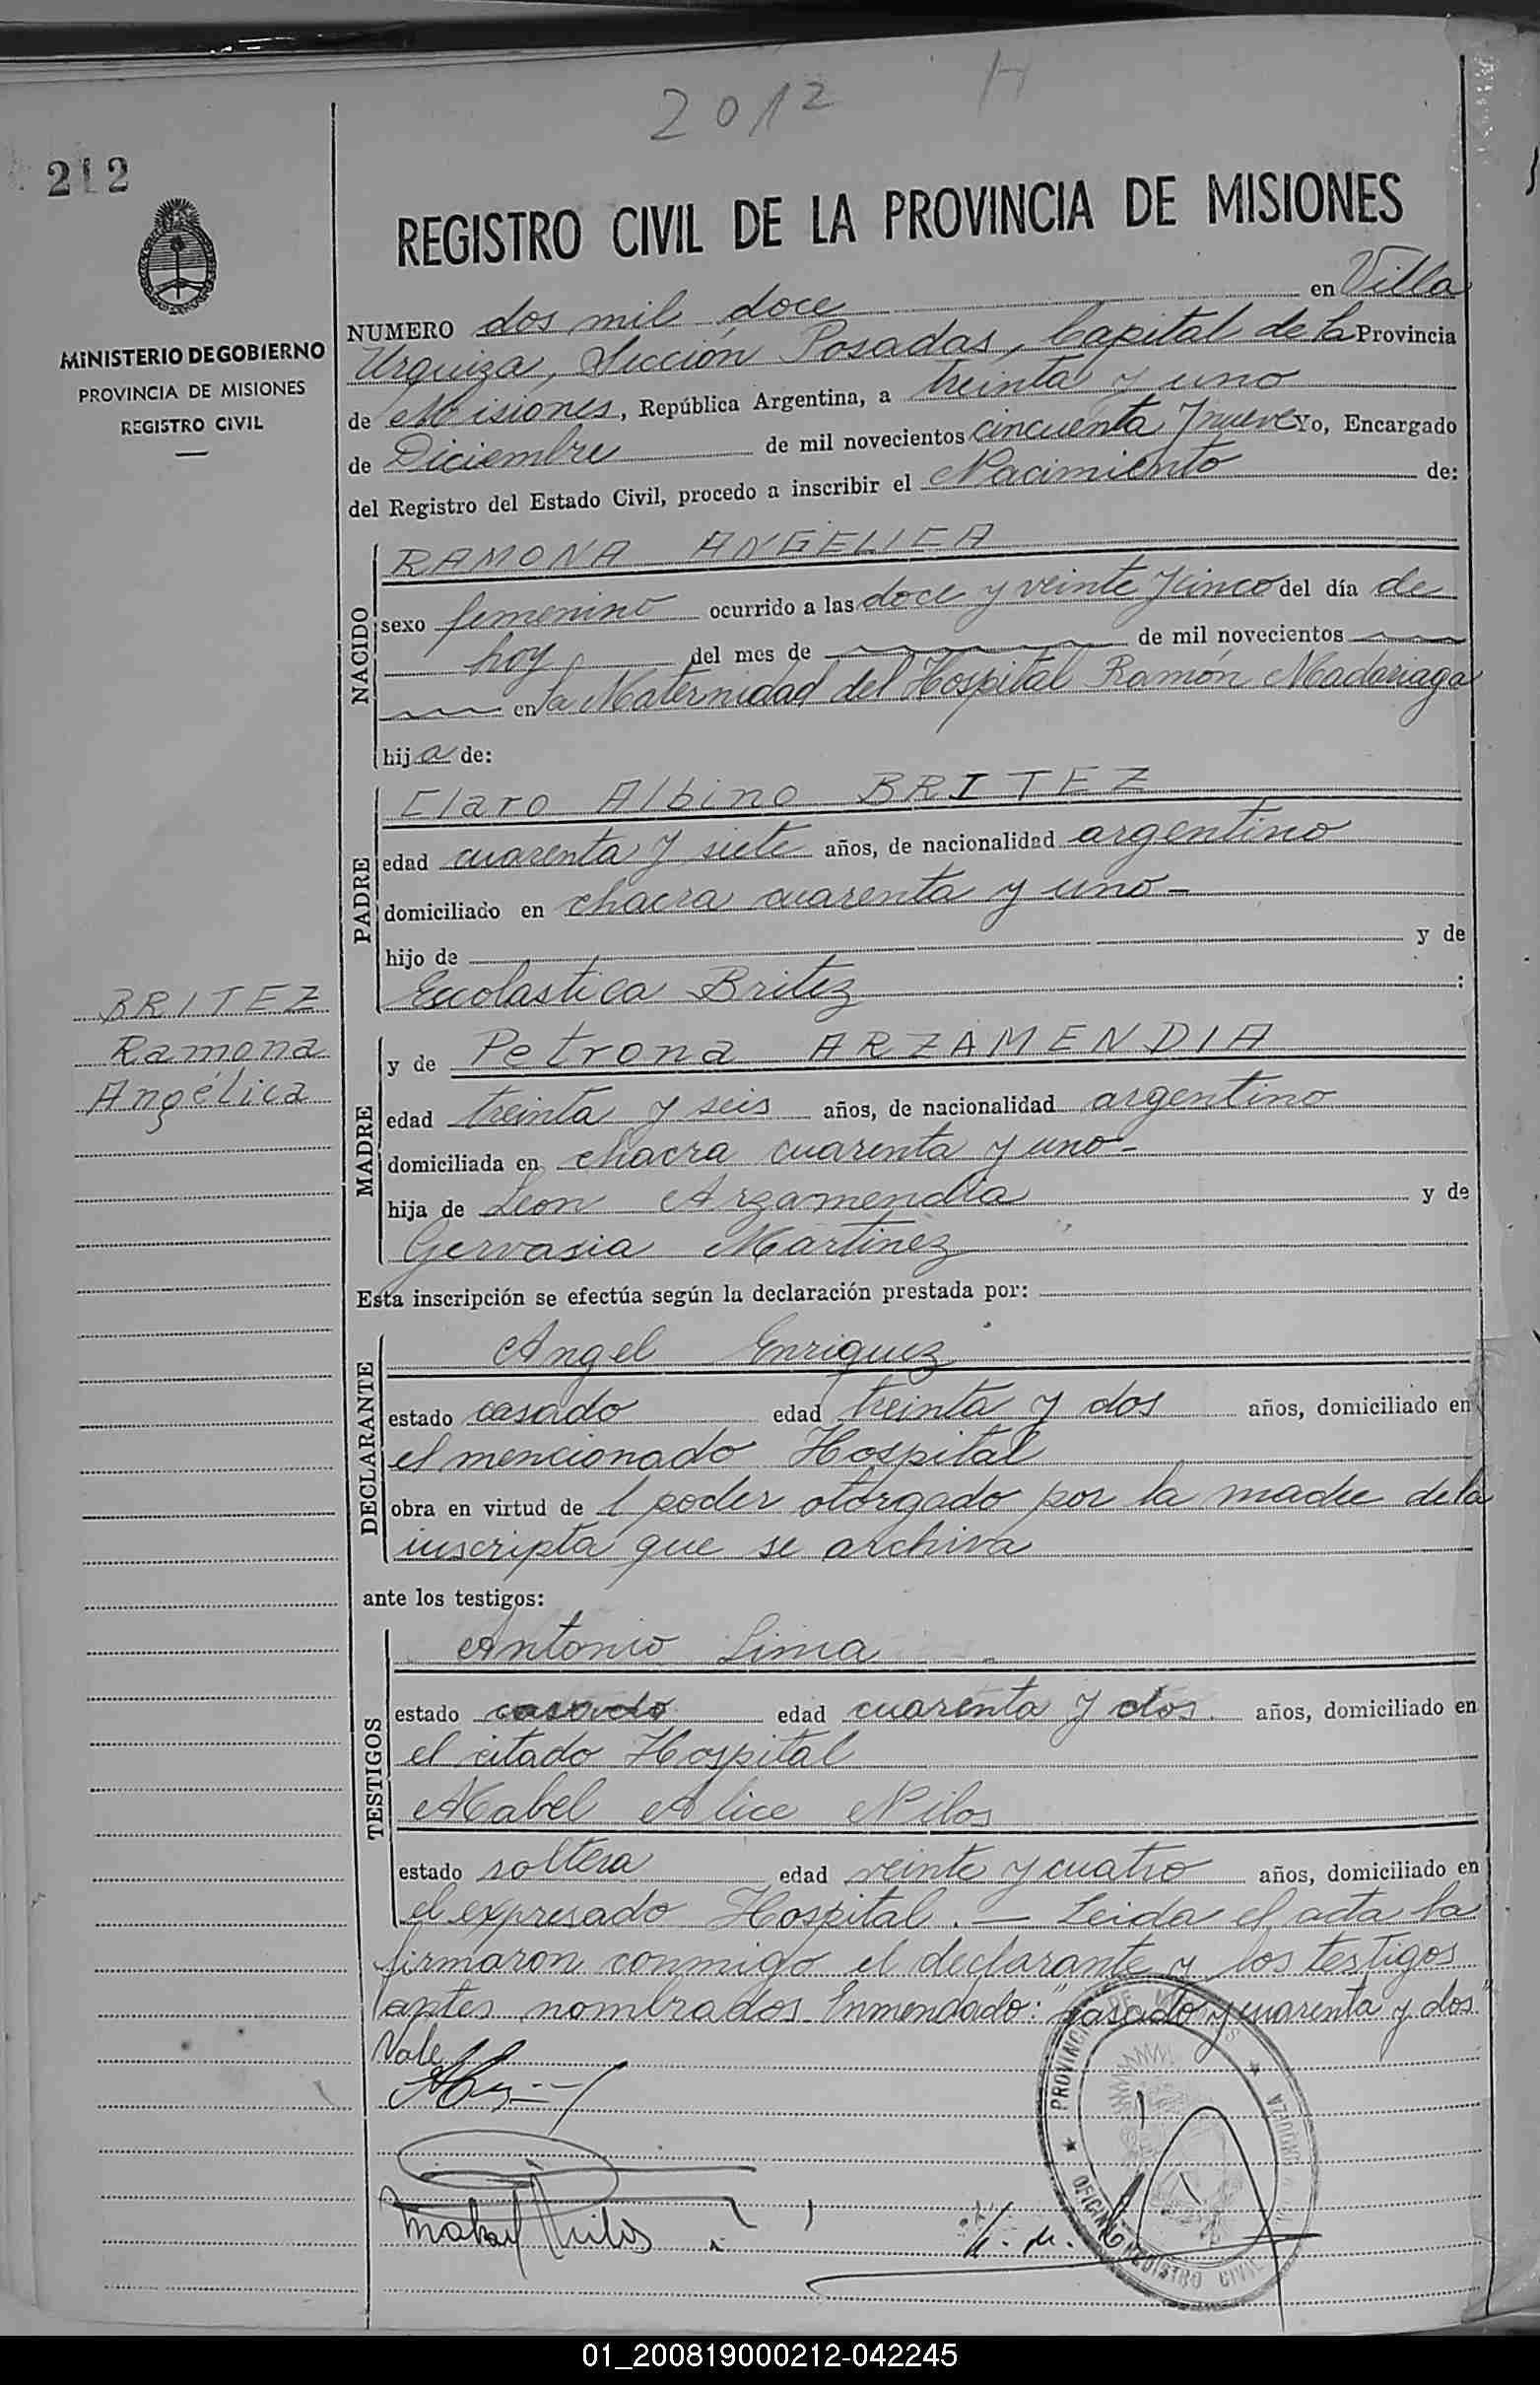 2012 H
212
REGISTRO CIVIL DE LA PROVINCIA DE MISIONES
MINISTERIO DE GOBIERNO
PROVINCIA DE MISIONES
REGISTRO CIVIL
NUMERO dos mil doce en Villa
Urquiza, Sección Posadas, Capital de la Provincia
de Misiones, República Argentina, a treinta y uno
de Diciembre de mil novecientos cincuenta y nueve Yo, Encargado
del Registro del Estado Civil, procedo a inscribir el Nacimiento de:
NACIDO
RAMONA ANGELICA
sexo femenino ocurrido a las doce y veinte y cinco del día de
hoy del mes de de mil novecientos
en la Maternidad del Hospital Ramón Madariaga
hija de:
PADRE
Claro Albino BRITEZ
edad cuarenta y siete años, de nacionalidad argentino
domiciliado en chacra cuarenta y uno-
hijo de y de
Escolastica Britez :
BRITEZ
Ramona
Angélica
MADRE
y de Petrona ARZAMENDIA
edad treinta y seis años, de nacionalidad argentino
domiciliada en chacra cuarenta y uno-
hija de Leon Arzamendia y de
Gervasia Martinez
Esta inscripción se efectúa según la declaración prestada por:
DECLARANTE
Angel Enriquez
estado casado edad treinta y dos años, domiciliado en
el mencionado Hospital
obra en virtud de l poder otorgado por la madre de la
inscripta que se archiva
ante los testigos:
TESTIGOS
Antonio Lima
estado casado edad cuarenta y dos años, domiciliado en
el citado Hospital
Mabel Alice Nilos
estado soltera edad veinte y cuatro años, domiciliado en
el expresado Hospital. — Leida el acta la
firmaron conmigo el declarante y los testigos
antes nombrados. Enmendado: "casado y cuarenta y dos."
Vale
PROVINCIA DE MISIONES
OFICINA REGISTRO CIVIL
01_200819000212-042245